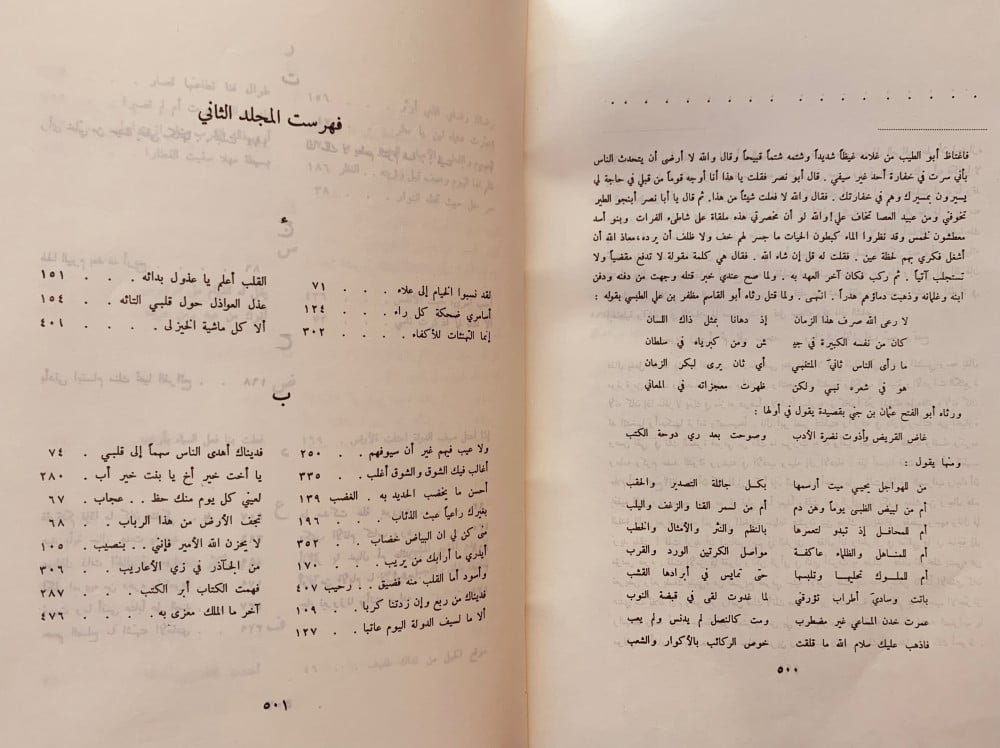 فاغتاظ أبو الطيب من غلامه غيظاً شديداً وشتمه شتماً قبيحاً وقال والله لا أرضى أن يتحدث الناس
بأني سرت في خفارة أحد غير سيفي . قال أبو نصر فقلت يا هذا أنا أوجه قوماً من قبلي في حاجة لي
يسيرون بمسيرك وهم في خفارتك . فقال والله لا فعلت شيئاً من هذا. ثم قال يا أبا نصر أبنجو الطير
تخوفني ومن عبيد العصا تخاف علي! والله لو أن مخصرتي هذه ملقاة على شاطىء الفرات وبنو أسد
معطشون لخمس وقد نظروا الماء كبطون الحيات ما جسر لهم خف ولا ظلف أن يرده، معاذ الله أن
أشغل فكري بهم لحظة عين . فقلت له قل إن شاء الله . فقال هي كلمة مقولة لا تدفع مقضياً ولا
تستجلب آتياً . ثم ركب فكان آخر العهد به . ولما صح عندي خبر قتله وجهت من دفنه ودفن
ابنه وغلمانه وذهبت دماؤهم هدراً . انتهى . ولما قتل رثاه أبو القاسم مظفر بن علي الطبسي بقوله :
لا رعى الله صرف هذا الزمان إذ دهانا بمثل ذاك اللسان
كان من نفسه الكبيرة في جيـ ش ومن كبرياء في سلطان
ما رأى الناس ثاني المتنبي أي ثان يرى لبكر الزمان
هو في شعره نبي ولكن ظهرت معجزاته في المعاني
ورثاه أبو الفتح عثمان بن جني بقصيدة يقول في أولها :
غاض القريض وأذوت نضرة الأدب وصوحت بعد ري دوحة الكتب
ومنها يقول :
من للهواجل يحيي ميت أرسمها بكل جائلة التصدير والحقب
أم من لبيض الظبى يوماً وهن دم أم من لسمر القنا والزغف واليلب
أم للمحافل إذ تبدو لتعمرها بالنظم والنثر والأمثال والخطب
أم للمناهل والظلماء عاكفة مواصل الكرتين الورد والقرب
أم للملوك تحليها وتلبسها حتى تمايس في أبرادها القشب
باتت وسادي أطراب تؤرقني لما غدوت لقى في قبضة النوب
عمرت خدن المساعي غير مضطرب ومت كالنصل لم يدنس ولم يعب
فاذهب عليك سلام الله ما قلقت خوص الركائب بالأكوار والشعب
٥٠٠
فهرست المجلد الثاني
ء
لقد نسبوا الخيام إلى علاء . . . ٧١
أسامري ضحكة كل راء . . . ١٢٤
إنما التهنئات للأكفاء . . . . ٣٠٢
القلب أعلم يا عذول بدائه . . . ١٥١
عذل العواذل حول قلبي التائه . . ١٥٤
ألا كل ماشية الخيزلى . . . . ٤٠١
ب
ولا عيب فيهم غير أن سيوفهم . . ٢٥٠
أغالب فيك الشوق والشوق أغلب . ٣٣٥
أحسن ما يخضب الحديد به . الغضب ١٣٩
بغيرك راعياً عبث الذئاب . . . ١٩٦
منى كن لي ان البياض خضاب . . ٣٥٢
أيدري ما أرابك من يريب . . . ١٧٠
وأسود أما القلب منه فضيق . . رحيب ٤٠٧
فديناك من ربع وإن زدتنا كربا . . ١٠٩
ألا ما لسيف الدولة اليوم عاتبا . . ١٢٧
فديناك أهدى الناس سهماً إلى قلبي . ٧٤
يا أخت خير أخ يا بنت خير أب . ٢٨٠
لعيني كل يوم منك حظ . . عجاب . ٦٧
تجف الأرض من هذا الرباب . . ٦٨
لا يحزن الله الأمير فإنني . . بنصيب . ١٠٥
من الجآذر في زي الأعاريب . . ٣٠٦
فهمت الكتاب أبر الكتب . . . ٣٨٧
آخر ما الملك معزى به . . . . ٤٧٦
٥٠١